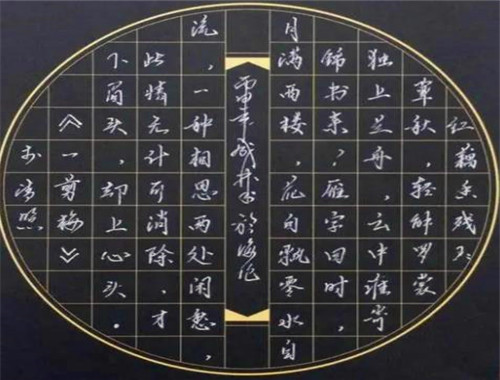 红藕香残玉
簟秋，轻解罗裳
独上兰舟，云中谁寄
锦书来？雁字回时，
月满西楼，花自飘零水自
流，一种相思两处闲愁，
此情无计可消除，才
下眉头，却上心头。
《一剪梅》
李清照